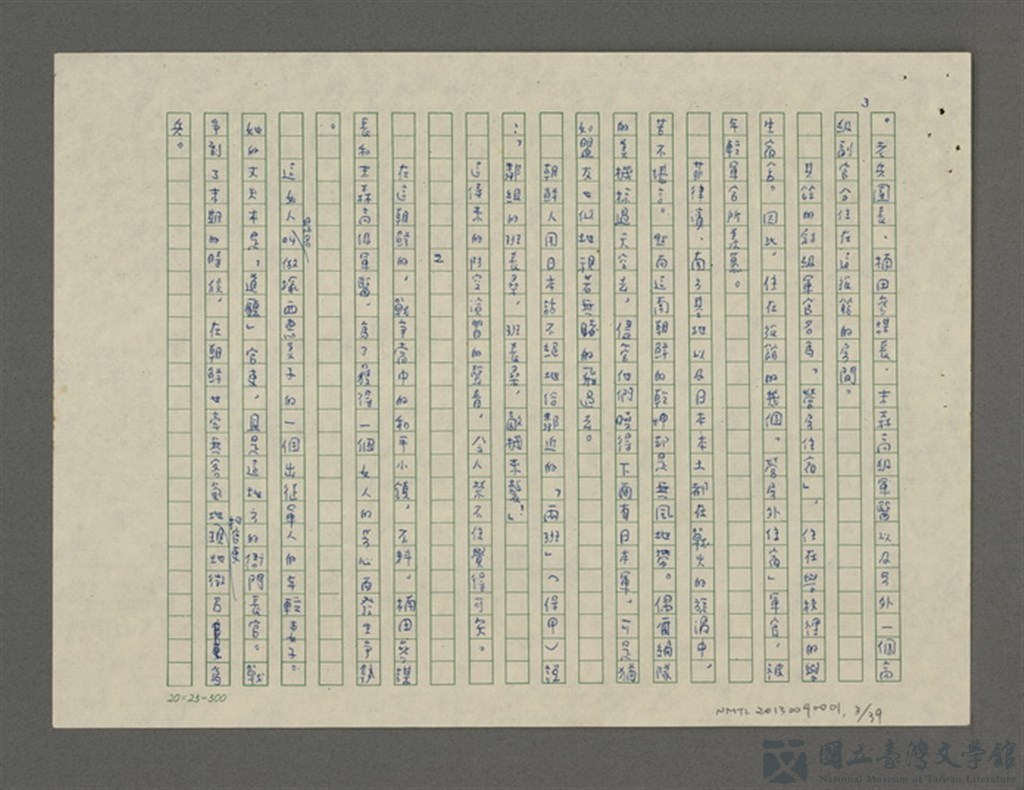 3
。老矢團長、楠田參謀長、末森高級軍醫以及另外一個高
級副官合住在這役館的房間。
其餘的尉級軍官名為「營房住宿」，住在學校裡的學
生宿舍。因此，住在役館的幾個「營房外住宿」軍官，被
年輕軍官所羨慕。
菲律濱、南方其他以及日本本土都在戰火的旋渦中，
苦不堪言。然而這南朝鮮的乾坤卻是無風地帶。偶爾編隊
的美機掠過天空去，儘管他們曉得下面有日本軍，可是猶
如盟友也似地，視若無睹的飛過去。
朝鮮人用日本話不絕地給鄰近的「兩班」（保甲）說
：「鄰組的班長桑，班長桑，敵機來襲！」
這傳來的防空演習的聲音，令人禁不住覺得可笑。
2
在這朝鮮的，戰爭當中的和平小鎮，不料，楠田參謀
長和末森高級軍醫，為了獲得一個女人的芳心而發生爭執
。
這女人叫做塚西惠美子的一個出征軍人的年輕妻子。
她的丈夫本是「道廳」官吏，且是這地方的衙門長官。戰
爭到了末期的時候，在朝鮮也毫無客氣地徵召官吏為
兵。
20×25=500
NMTL 20130090001, 3/39
國立臺灣文學館
National Museum of Taiwan Literature